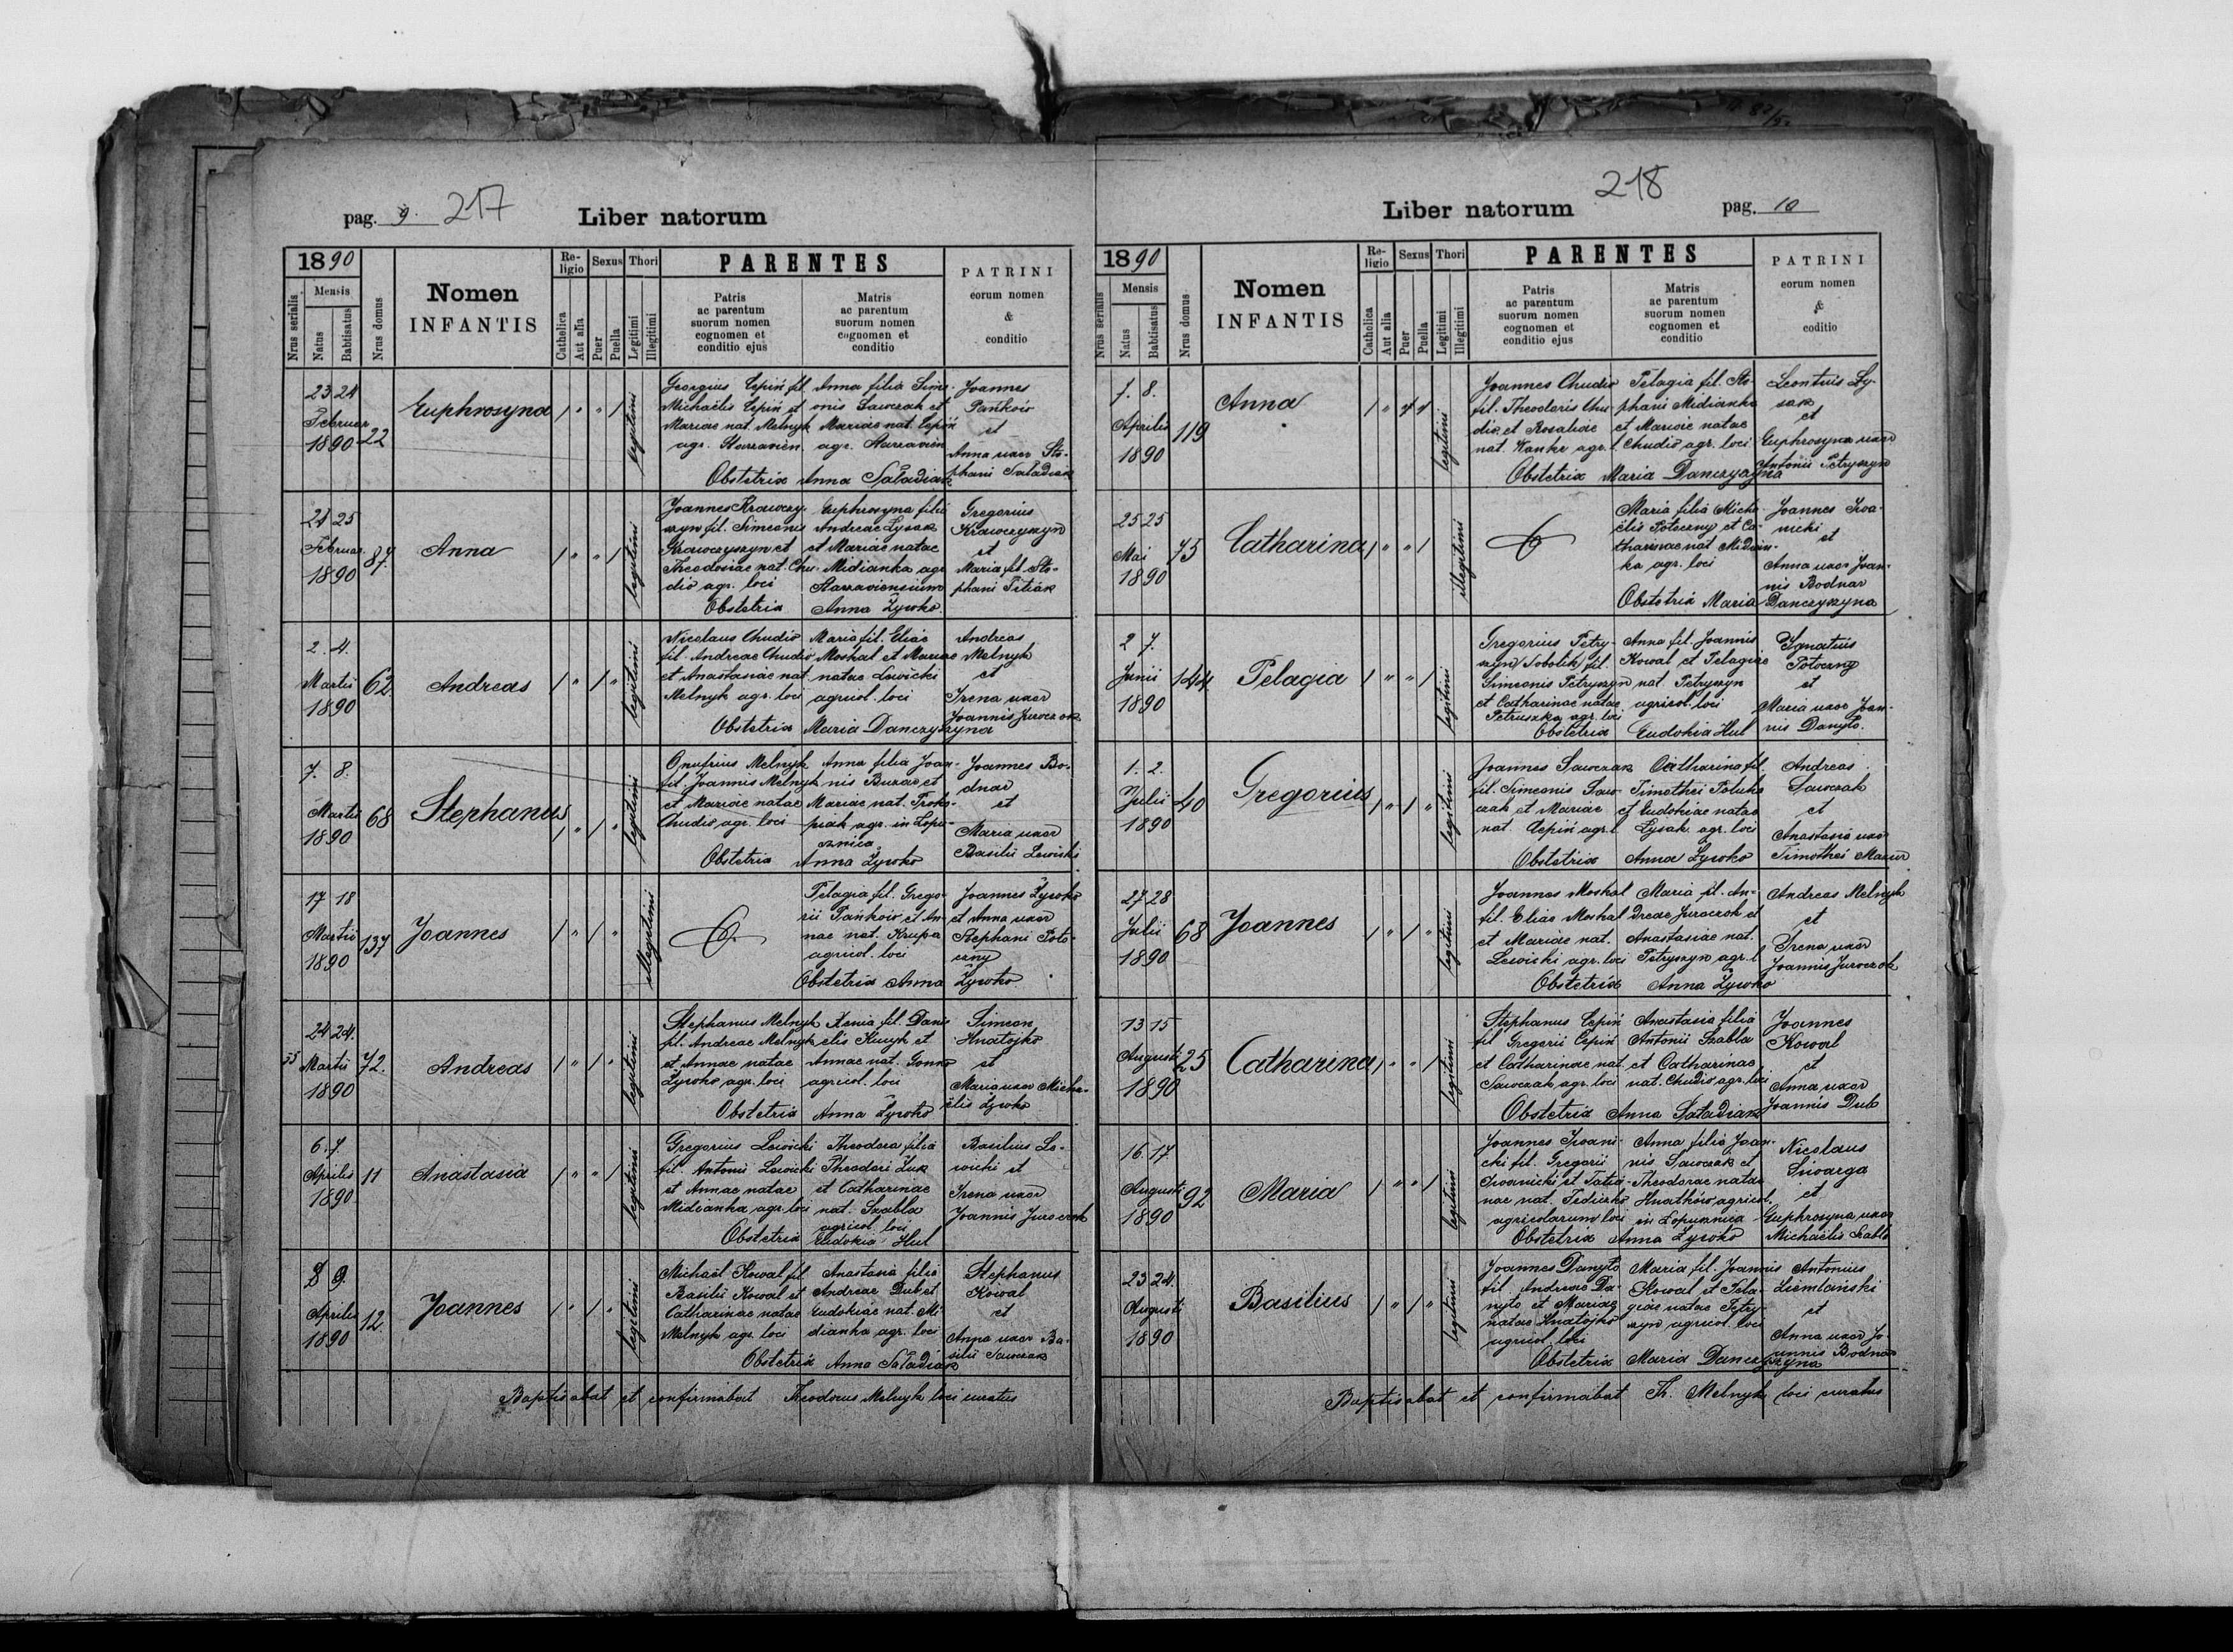 pag. 9. 217 Liber natorum
1890
Nrus serialis
Mensis
Natus
Babtisatus
Nrus domus
Nomen
INFANTIS
Religio
Catholica
Aut alia
Sexus
Puer
Puella
Thori
Legitimi
Illegitimi
PARENTES
Patris
ac parentum
suorum nomen
cognomen et
conditio ejus
Matris
ac parentum
suorum nomen
cognomen et
conditio
PATRINI
eorum nomen
&
conditio
23 24
Februar
1890
22
Euphrosyna
legitimi
Georgius Cepiń fil.
Michaëlis Cepiń et
Mariae nat. Melnyk
agr. Starzavien.
Anna filia Sime-
onis Sawczak et
Mariae nat. Cepiń
agr. Starzavien
Joannes
Pańkow
et
Anna uxor Ste-
phani Saładiak
Obstetrix Anna Saładiak
24 25
Februar.
1890
87.
Anna
legitimi
Joannes Krawczy-
szyn fil. Simeonis
Krawczyszyn et
Theodosiae nat. Chu-
dio agr. loci
Euphrosyna filia
Andreae Lysak
et Mariae natae
Midianka agr
Starzaviensium
Gregorius
Krawczyszyn
et
Maria fil. Ste-
phani Petiak
Obstetrix Anna Żywko
2. 4.
Martii
1890
62
Andreas
legitimi
Nicolaus Chudio
fil. Andreae Chudio
et Anastasiae nat.
Melnyk agr. loci
Maria fil. Eliae
Moskal et Mariae
natae Lewicki
agricol. loci
Andreas
Melnyk
et
Irena uxor
Joannis Juroczok
Obstetrix Maria Danczyszyna
7. 8.
Martii
1890
68
Stephanus
legitimi
Onufrius Melnyk
fil. Joannis Melnyk
et Mariae natae
Chudio agr. loci
Anna filia Joan-
nis Burar et
Mariae nat. Proko-
piak agr. in Łopu-
sznica
Joannes Bo-
dnar
et
Maria uxor
Basilii Lewicki
Obstetrix Anna Żywko
17 18
Martii
1890
137
Joannes
illegitimi
Pelagia fil. Grego-
rii Pańkow et An-
nae nat. Krupa
agricol. loci
Joannes Żywko
et Anna uxor
Stephani Poto-
czny
Obstetrix Anna Żywko
24 24.
Martii
1890
72.
Andreas
legitimi
Stephanus Melnyk
fil. Andreae Melnyk
et Annae natae
Żywko agr. loci
Xenia fil. Dani-
elis Kucyk et
Annae nat. Gonko
agricol. loci
Simeon
Hnatojko
et
Maria uxor Micha-
ëlis Żywko
Obstetrix Anna Żywko
6. 7.
Aprilis
1890
11
Anastasia
legitimi
Gregorius Lewicki
fil. Antonii Lewicki
et Annae natae
Midianka agr. loci
Theodora filia
Theodori Żuk
et Catharinae
nat. Szabla
agricol. loci
Basilius Le-
wicki et
Irena uxor
Joannis Juroczok
Obstetrix Eudokia Hul
8 9.
Aprilis
1890
12
Joannes
legitimi
Michaël Kowal fil.
Basilii Kowal et
Catharinae natae
Melnyk agr. loci
Anastasia filia
Andreae Dub et
Eudokiae nat. Mi-
dianka agr. loci
Stephanus
Kowal
et
Anna uxor Ba-
silii Sawczak
Obstetrix Anna Saładiak
Baptisabat et confirmabat Theodorus Melnyk loci curatus
218
Liber natorum pag. 10
1890
Nrus serialis
Mensis
Natus
Babtisatus
Nrus domus
Nomen
INFANTIS
Religio
Catholica
Aut alia
Sexus
Puer
Puella
Thori
Legitimi
Illegitimi
PARENTES
Patris
ac parentum
suorum nomen
cognomen et
conditio ejus
Matris
ac parentum
suorum nomen
cognomen et
conditio
PATRINI
eorum nomen
&
coditio
7. 8.
Aprilis
1890
119
Anna
legitimi
Joannes Chudio
fil. Theodoris Chu-
dio et Rosaliae
nat. Kanke agr. l
Pelagia fil. Ste-
phani Midianka
et Mariae natae
Chudio agr. loci
Leontius Ły-
sak
et
Euphrosyna uxor
Antonii Petryszyn
Obstetrix Maria Danczyszyna
25 25
Mai
1890
75
Catharina
illegitimi
Maria filia Micha-
ëlis Potoczny et Ca-
tharinae nat. Midian-
ka agr. loci
Joannes Iwa-
nicki
et
Anna uxor Joan-
nis Bodnar
Obstetrix Maria Danczyszyna
2 7.
Junii
1890
144
Pelagia
legitimi
Gregorius Petry-
szyn (Sobolik) fil.
Simeonis Petryszyn
et Catharinae natae
Petruszka agr. loci
Anna fil. Joannis
Kowal et Pelagiae
nat. Petryszyn
agricol. loci
Ignatius
Potoczny
et
Maria uxor Joan-
nis Danyło.
Obstetrix Eudokia Hul
1. 2.
Julii
1890
40
Gregorius
legitimi
Joannes Sawczak
fil. Simeonis Saw-
czak et Mariae
nat. Cepiń agr. l
Catharina fil
Timothei Poluha
et Eudokiae natae
Łysak agr. loci
Andreas
Sawczak
et
Anastasia uxor
Timothei Mazur
Obstetrix Anna Żywko
27 28
Julii
1890
68
Joannes
legitimi
Joannes Moskal
fil. Eliae Moskal
et Mariae nat.
Lewicki agr. loci
Maria fil. An-
dreae Juroczok et
Anastasiae nat.
Petryszyn agr. l
Andreas Melnyk
et
Irena uxor
Joannis Juroczok
Obstetrix Anna Żywko
13 15
Augusti
1890
25
Catharina
legitimi
Stephanus Cepiń
fil Gregorii Cepiń
et Catharinae nat
Sawczak agr. loci
Anastasia filia
Antonii Szabla
et Catharinae
nat. Chudio agr. loci
Joannes
Kowal
et
Anna uxor
Joannis Dub
Obstetrix Anna Saładiak
16 17.
Augusti
1890
92
Maria
legitimi
Joannes Iwani-
cki fil. Gregorii
Iwanicki et Tatia-
nae nat. Fediczko
agricolarum loci
Anna filia Joan-
nis Sawczak et
Theodorae natae
Hnatków agricol.
in Łopusznica
Nicolaus
Siwarga
et
Euphrosyna uxor
Michaëlis Szabla
Obstetrix Anna Żywko
23 24.
Augusti
1890
Basilius
legitimi
Joannes Danyło
fil. Andreae Da-
nyło et Mariae
natae Hnatojko
agricol. loci
Maria fil. Joannis
Kowal et Pela-
giae natae Petry-
szyn agricol. loci
Antonius
Ziemlański
et
Anna uxor Jo-
annis Bodnar
Obstetrix Maria Danczyszyna
Baptisabat et confirmabat Th. Melnyk loci curatus